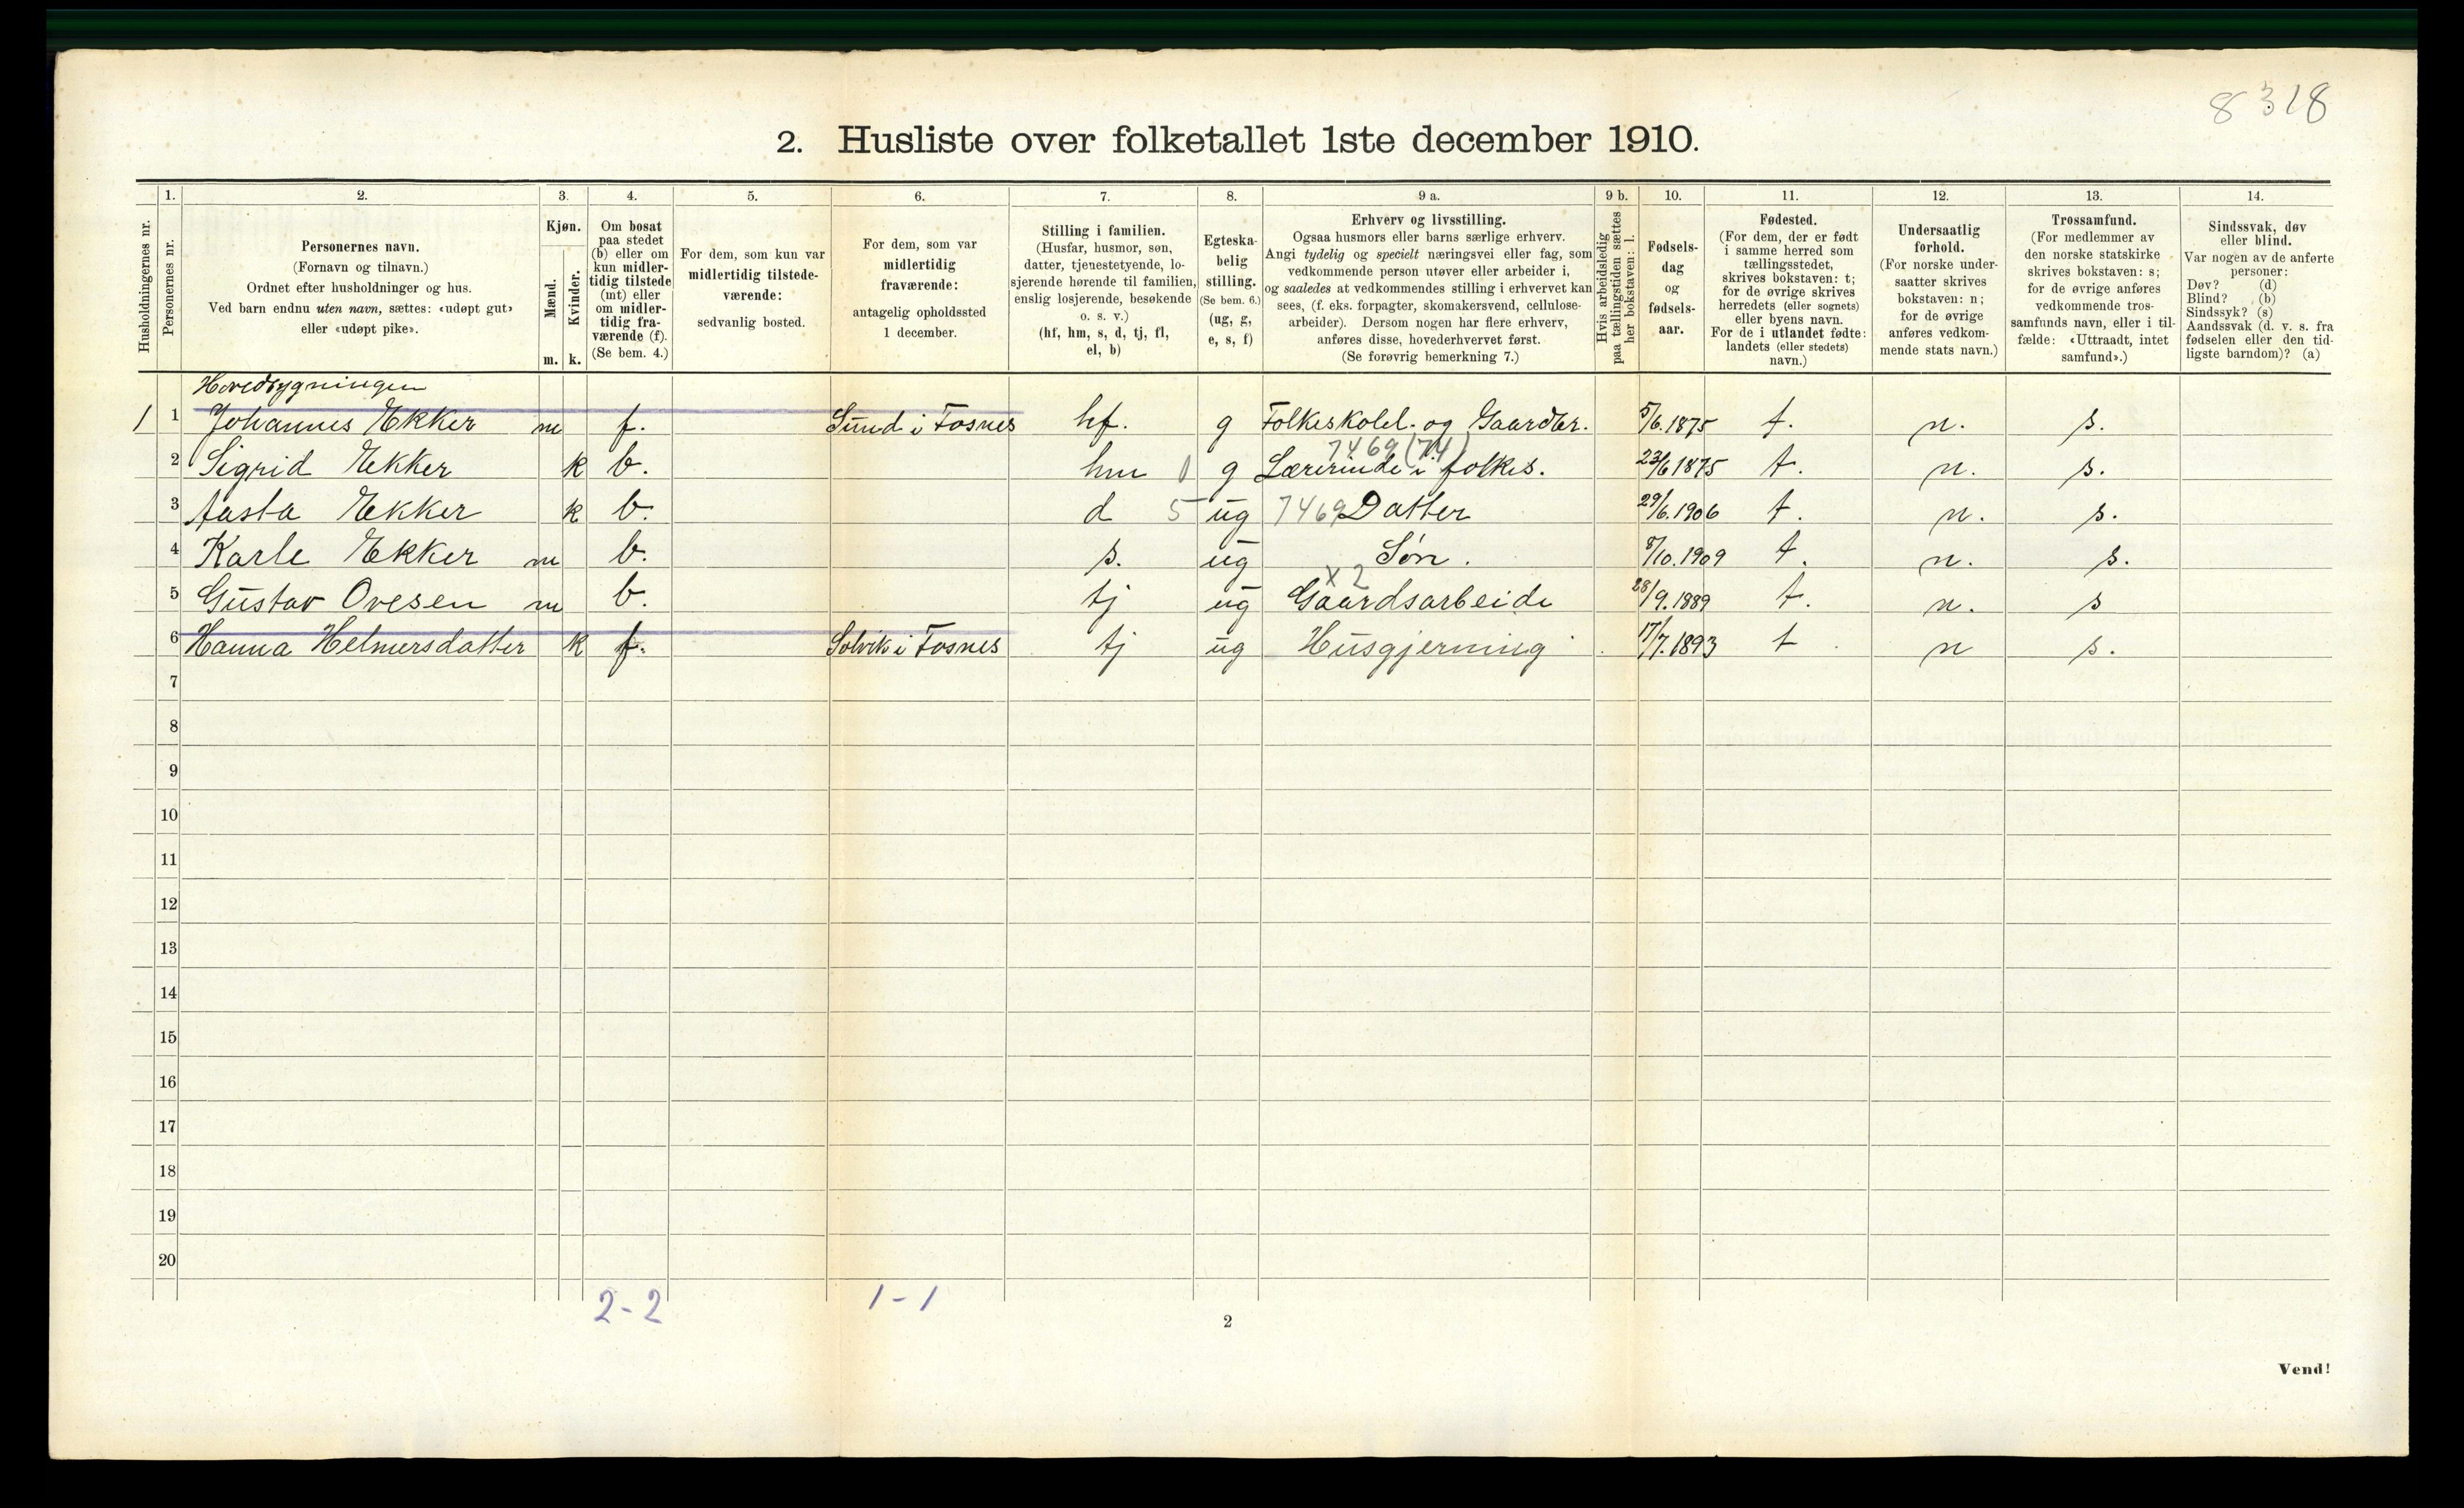 8318
2. Husliste over folketallet 1ste december 1910.
Husholdningernes nr.
1.
Personernes nr.
2.
Personernes navn.
(Fornavn og tilnavn.)
Ordnet efter husholdninger og hus.
Ved barn endnu uten navn, sættes: «udøpt gut»
eller «udøpt pike».
3.
Kjøn.
Mænd.
Kvinder.
m. k.
4.
Om bosat
paa stedet
(b) eller om
kun midler-
tidig tilstede
(mt) eller
om midler-
tidig fra-
værende (f).
(Se bem. 4.)
5.
For dem, som kun var
midlertidig tilstede-
værende:
sedvanlig bosted.
6.
For dem, som var
midlertidig
fraværende:
antagelig opholdssted
1 december.
7.
Stilling i familien.
(Husfar, husmor, søn,
datter, tjenestetyende, lo-
sjerende hørende til familien,
enslig losjerende, besøkende
o. s. v.)
(hf, hm, s, d, tj, fl,
el, b)
8.
Egteska-
belig
stilling.
(Se bem. 6.)
(ug, g,
e, s, f)
9 a.
Erhverv og livsstilling.
Ogsaa husmors eller barns særlige erhverv.
Angi tydelig og specielt næringsvei eller fag, som
vedkommende person utøver eller arbeider i,
og saaledes at vedkommendes stilling i erhvervet kan
sees, (f. eks. forpagter, skomakersvend, cellulose-
arbeider). Dersom nogen har flere erhverv,
anføres disse, hovederhvervet først.
(Se forøvrig bemerkning 7.)
9 b.
Hvis arbeidsledig
paa tællingstiden sættes
her bokstaven: l.
10.
Fødsels-
dag
og
fødsels-
aar.
11.
Fødested.
(For dem, der er født
i samme herred som
tællingsstedet,
skrives bokstaven: t;
for de øvrige skrives
herredets (eller sognets)
eller byens navn.
For de i utlandet fødte:
landets (eller stedets)
navn.)
12.
Undersaatlig
forhold.
(For norske under-
saatter skrives
bokstaven: n;
for de øvrige
anføres vedkom-
mende stats navn.)
13.
Trossamfund.
(For medlemmer av
den norske statskirke
skrives bokstaven: s;
for de øvrige anføres
vedkommende tros-
samfunds navn, eller i til-
fælde: «Uttraadt, intet
samfund».)
14.
Sindssvak, døv
eller blind.
Var nogen av de anførte
personer:
Døv? (d)
Blind? (b)
Sindssyk? (s)
Aandssvak (d. v. s. fra
fødselen eller den tid-
ligste barndom)? (a)
Hovedbygningen
1 1 Johannes Ekker m f. Sund i Fosnes hf. g Folkeskolel. og Gaardbr. 5/6.1875 t. n. s.
7469 (74)
2 Sigrid Ekker k b. hm 0 g Lærerinde i folkes. 23/6 1875 t. n. s.
3 Aasta Ekker k b. d 5 ug 7469 Datter 29/6.1906 t. n. s.
4 Karle Ekker m b. s. ug Søn. 8/10.1909 t. n. s.
x 2
5 Gustav Ovesen m b. tj ug Gaardsarbeide 28/9.1889 t. n. s
6 Hanna Helmersdatter k f. Solvik i Fosnes tj ug Husgjerning 17/7.1893 t n s.
7
8
9
10
11
12
13
14
15
16
17
18
19
20
2-2 1-1
2
Vend!